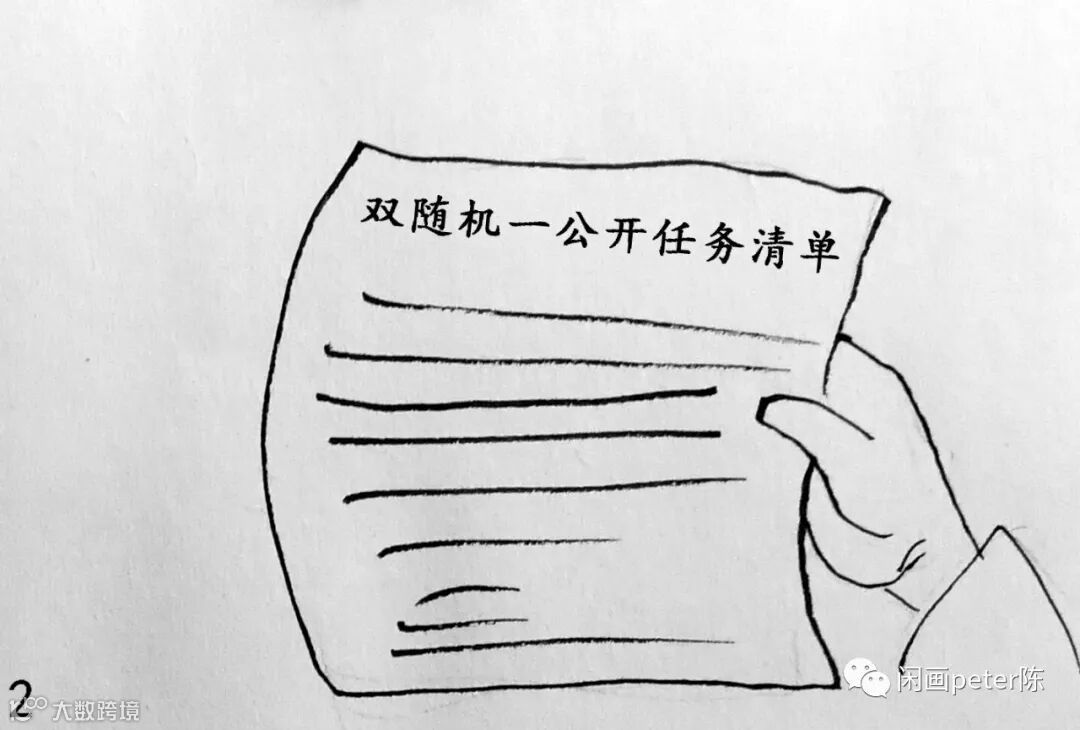 双随机一公开任务清单
闲画peter陈
2
大数跨境